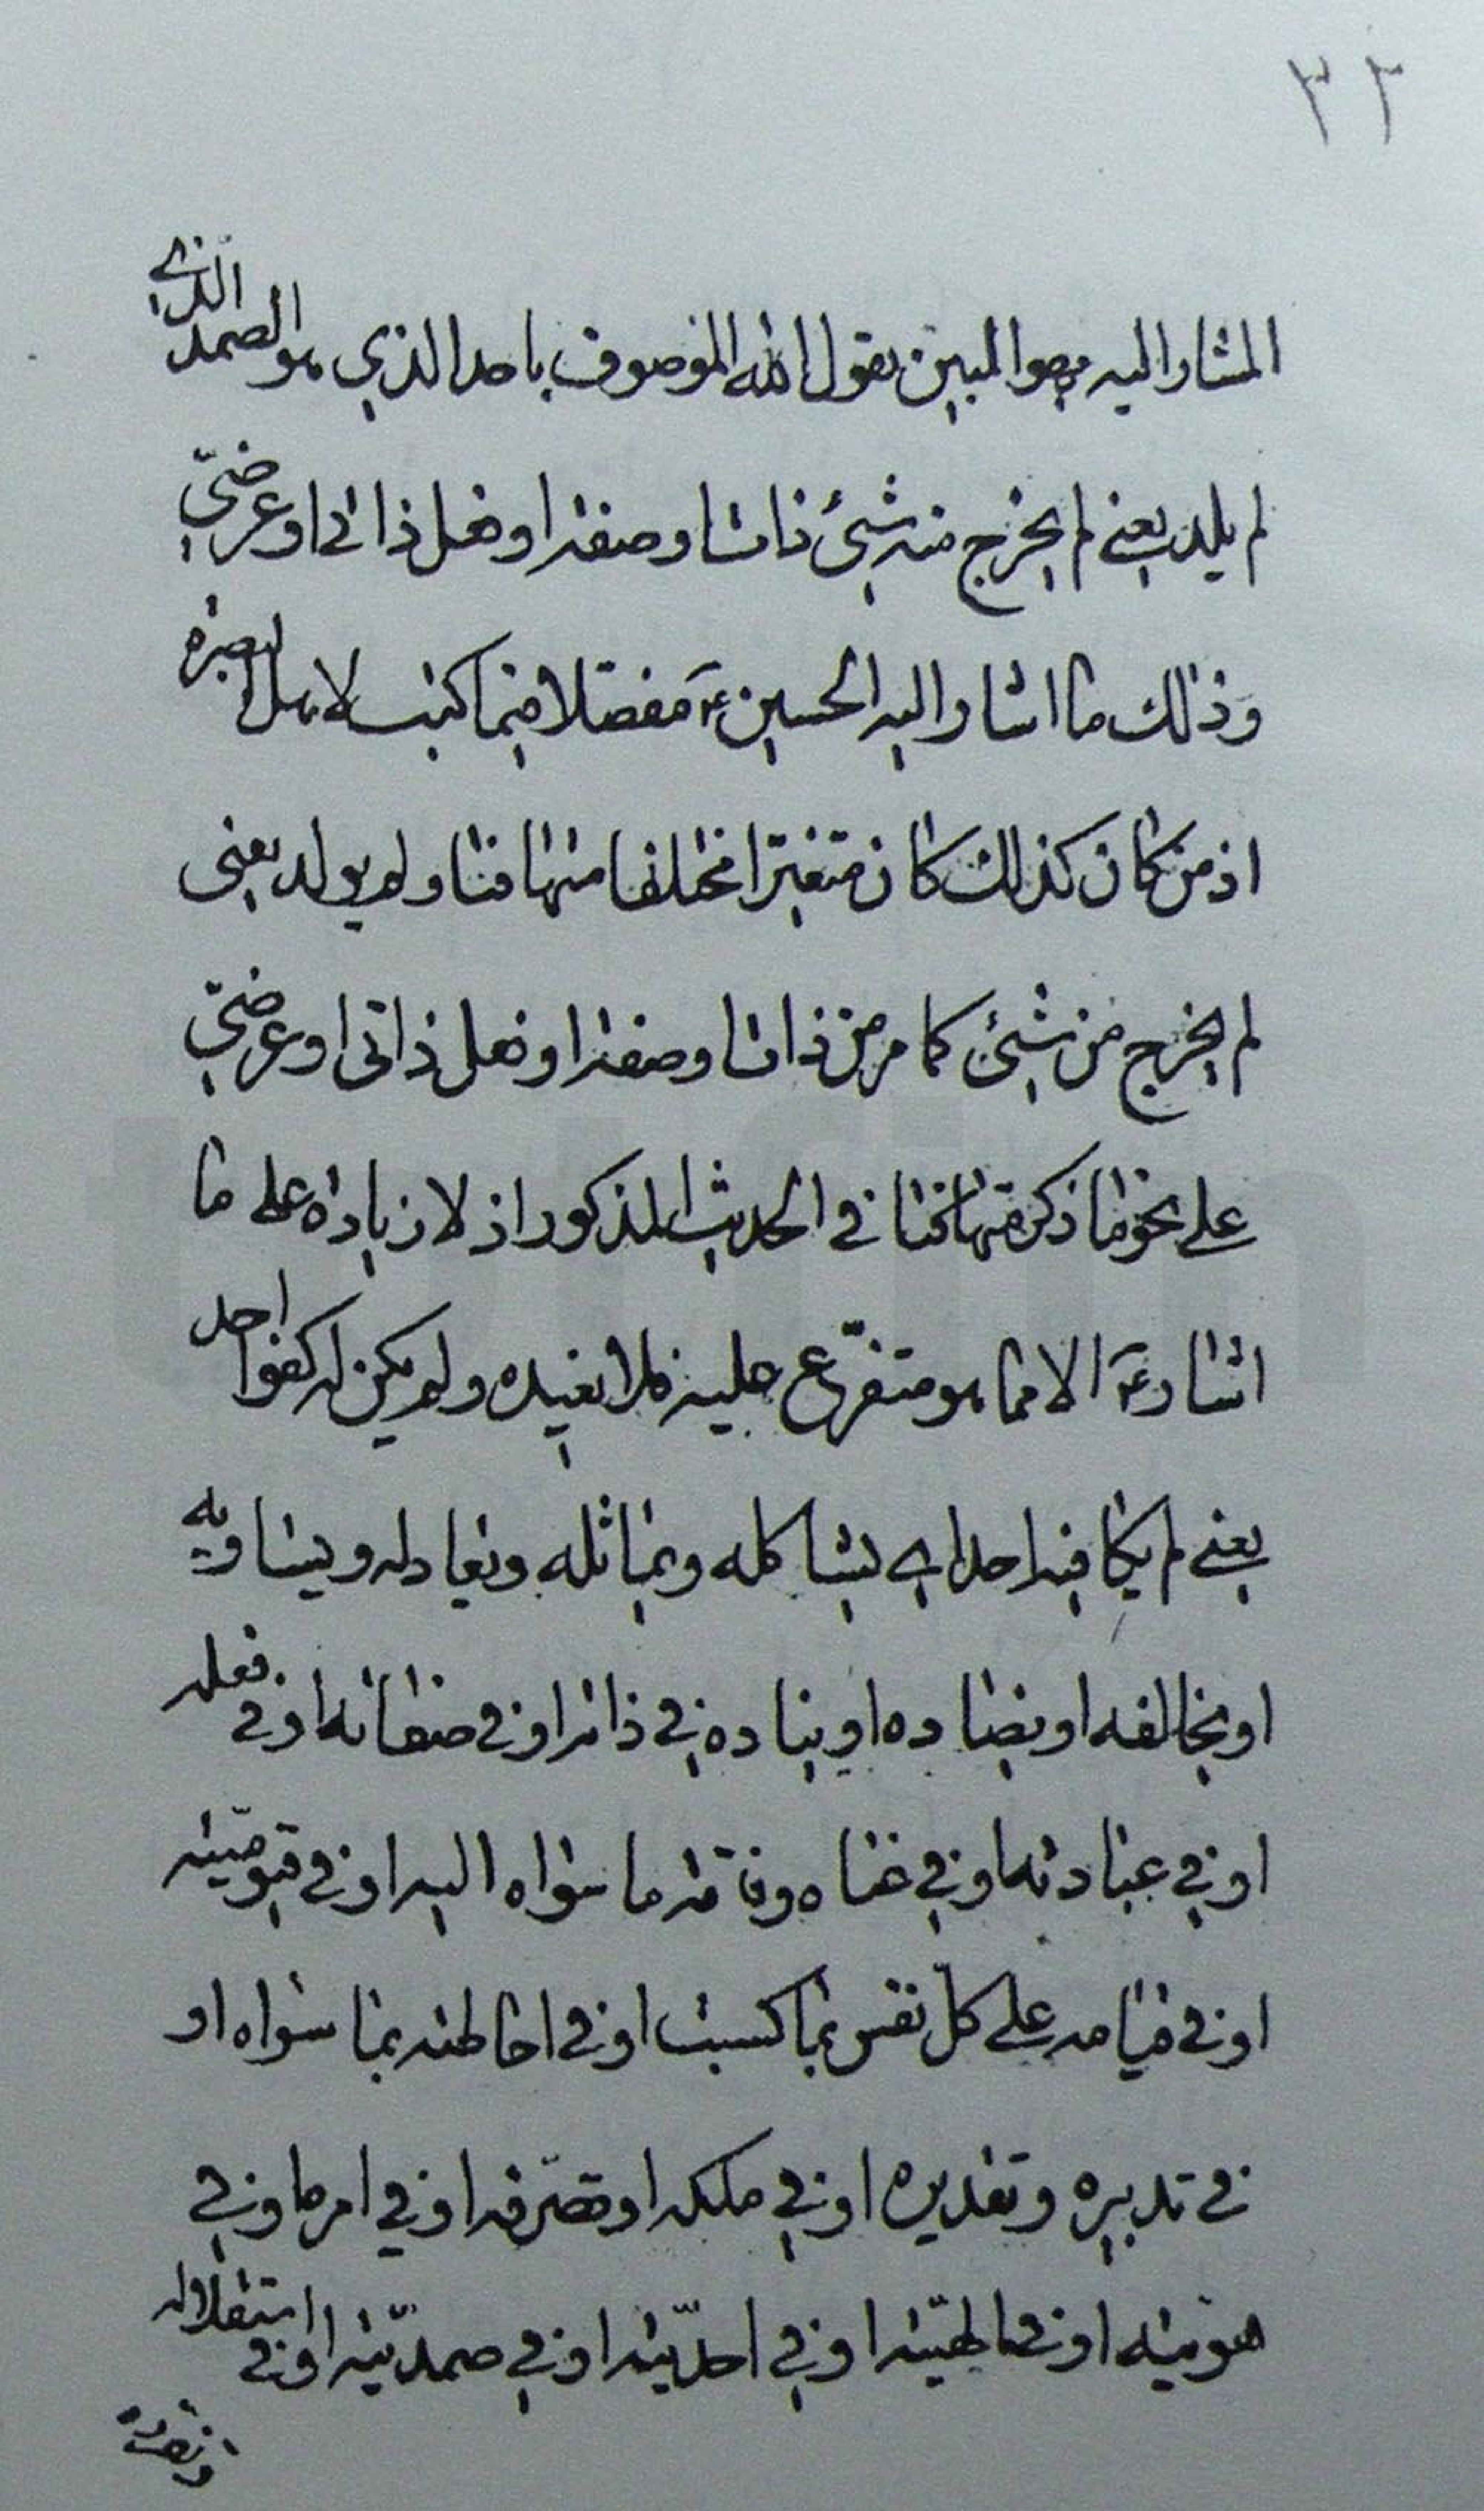 ٣٢
المشار اليه بهو المبين بقول الله الموصوف باحد الذي هو الصمد الذي
لم يلد يعني لم يخرج منه شيئ ذاتا وصفة او فعل ذاتي او عرضيّ
وذلك ما اشار اليه الحسين ع مفصّلا فيما كتب لاهل البصرة
اذ من كان كذلك كان متغيّرا مختلفا متهافتا ولم يولد يعني
لم يخرج من شيئ كما مر من ذات او صفة او فعل ذاتي او عرضيّ
على نحو ما ذكر متهافتا في الحديث المذكور اذ لا زيادة على ما
اشار ع الا مما هو متفرّع عليه فلا نعيده ولم يكن له كفوا احد
يعني لم يكافيه احد اي يشاكله ويماثله ويعادله ويساويه
او يخالفه او يضاده او يناده في ذاته او في صفاته او في فعله
او في عبادته او في غناه وفاقة ما سواه اليه او في قيّوميّته
او في قيامه على كلّ نفس بما كسبت او في احاطته بما سواه او
في تدبيره وتقديره او في ملكه او تصرّفه او في امره او في
هويّته او في الهيّته او في احديّته او في صمديّته او في استقلاله
وتفرده